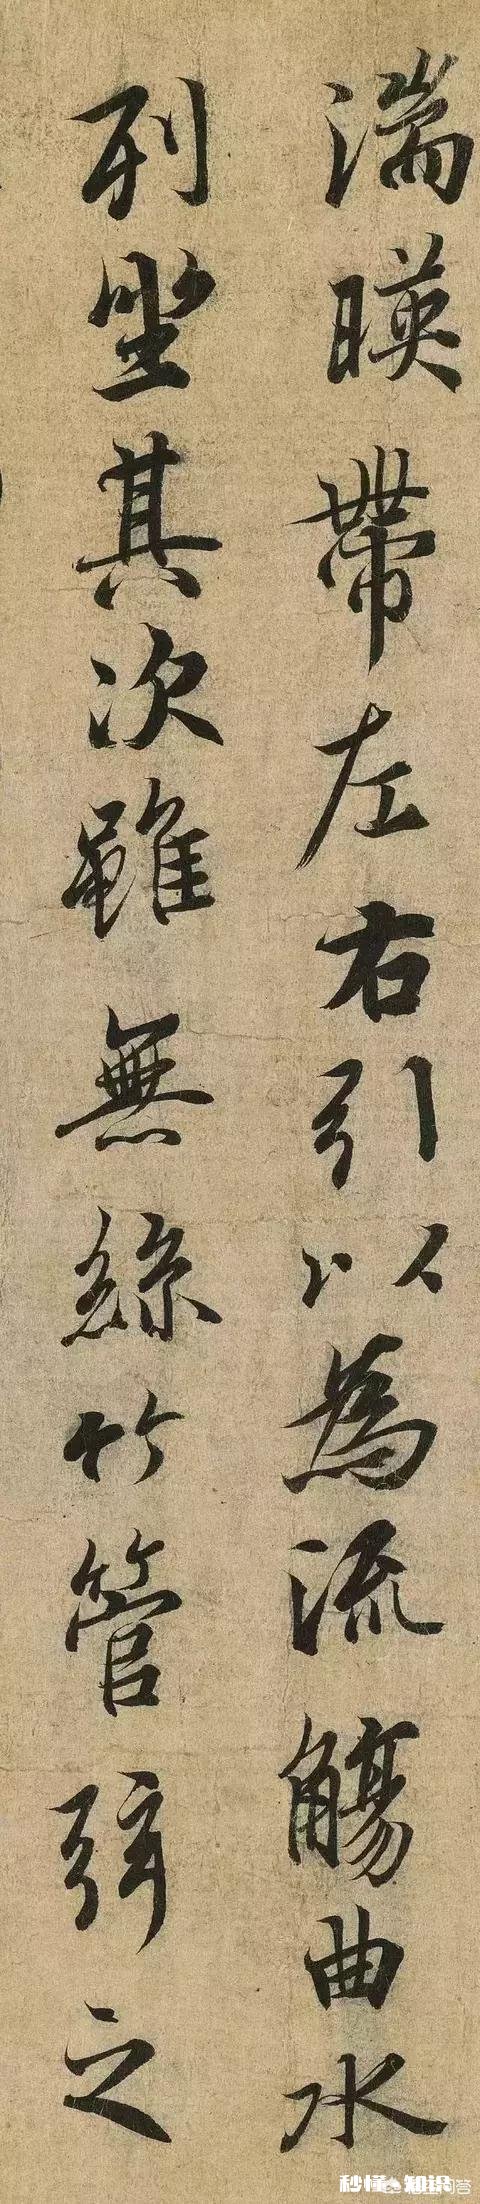 湍暎帶左右引以為流觴曲水
列坐其次雖無絲竹管弦之
秒懂 知识